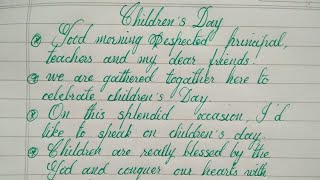 Children's Day
Good morning Respected principal,
teachers and my dear friends!
we are gathered togather here to
celebrate children's Day.
On this splendid occasion, I'd
like to speak on children's day.
Children are really blessed by the
God and conquer our hearts with